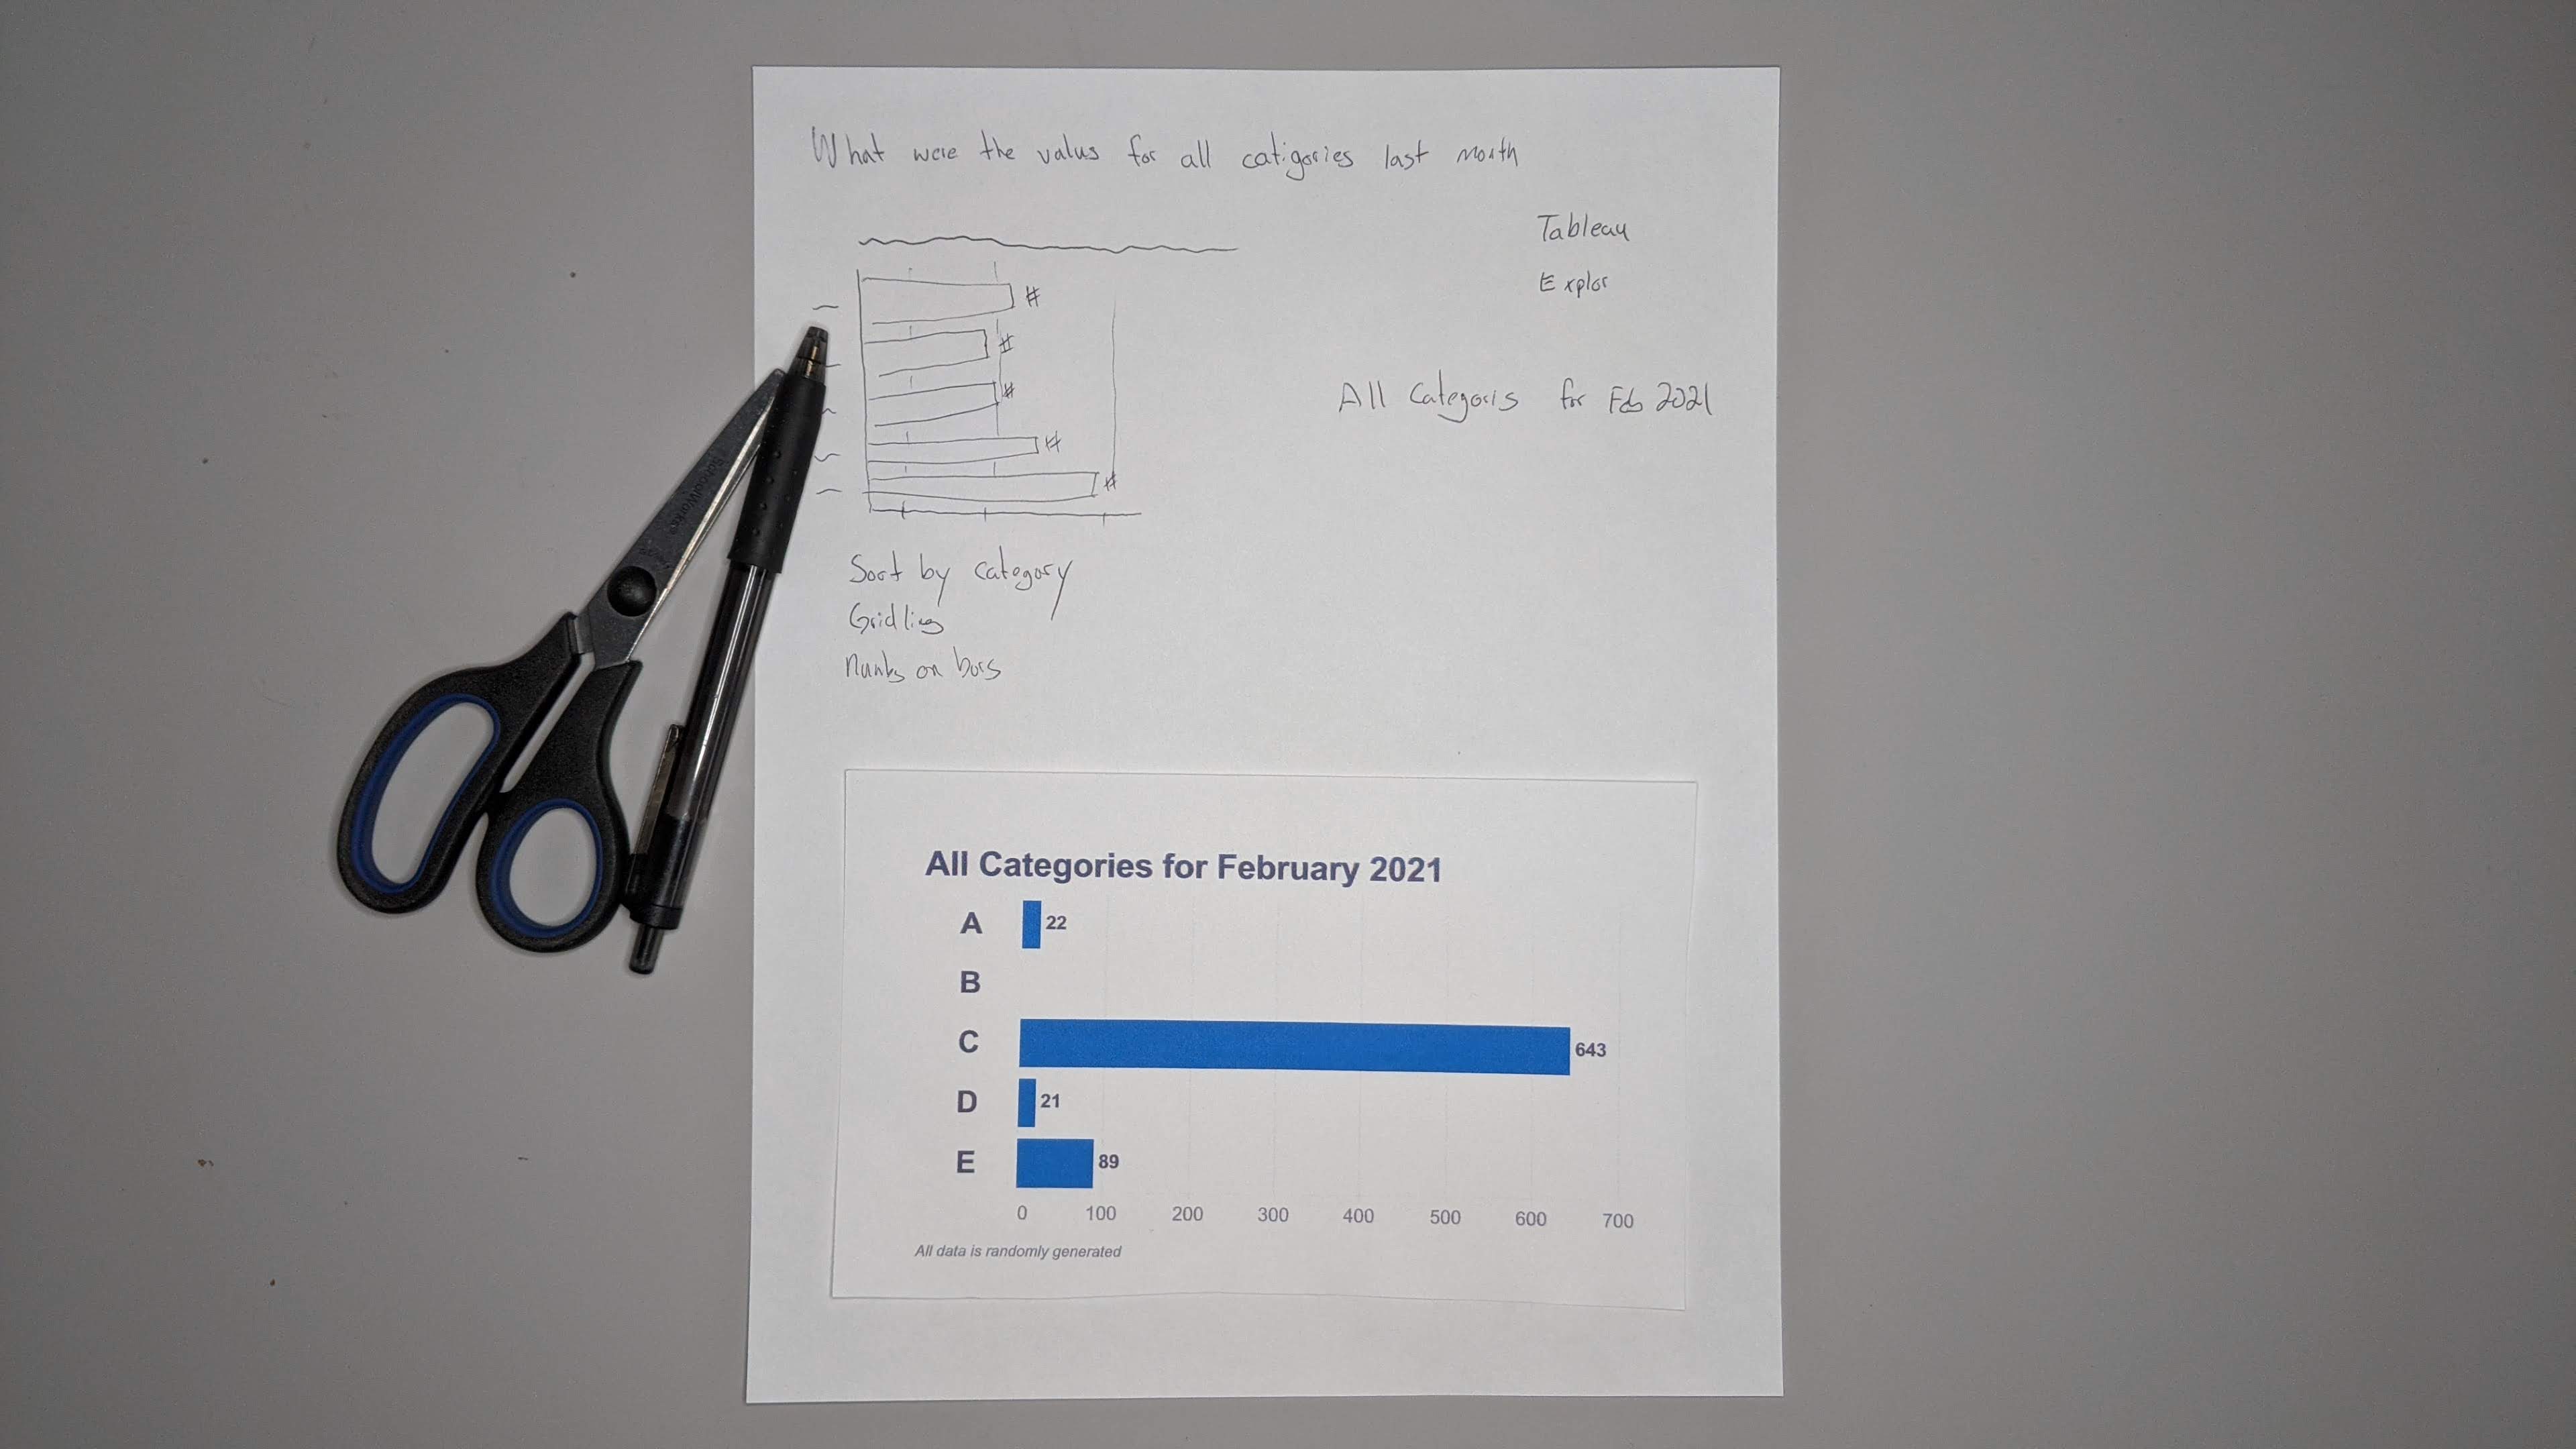 What were the valus for all catigories last month
Tableau
Explor
#
#
#
#
#
All Categoris for Feb 2021
Sort by category
Gridlines
on bars
SchoolWorks
All Categories for February 2021
A 22
B
C 643
D 21
E 89
0 100 200 300 400 500 600 700
All data is randomly generated